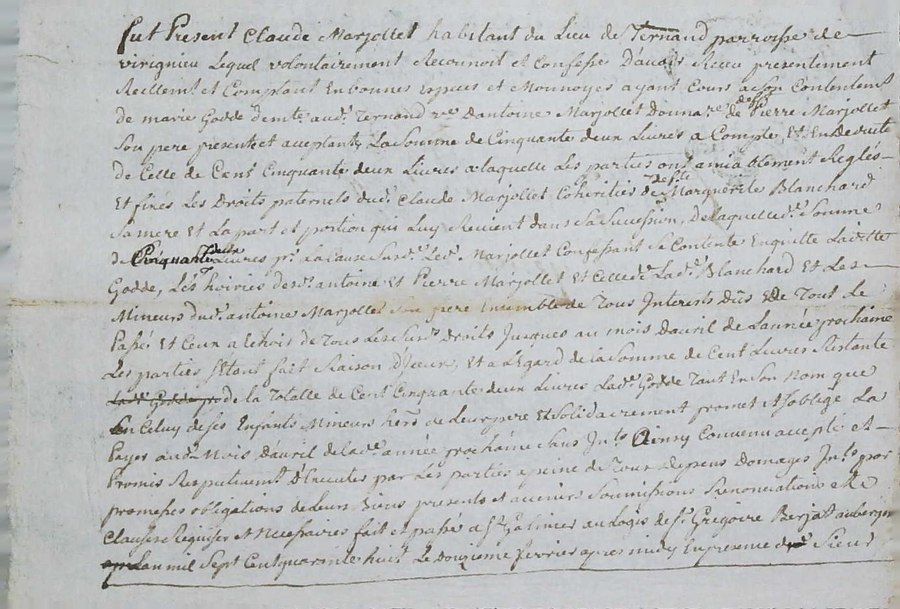 fut Present Claude Marjollet habitant du Lieu de Ternand parroisse de
virignieu Lequel volontairement Reconnoit et Confesse D'avoir Receu presentement
Reellem.t et Comptant En bonnes Especes et Monnoyes ayant Cours a son Contentem.t
de marie Godde demte. aud.t Ternand r.ve d'antoine Marjollet Donnare. de deff.t Pierre Marjollet
Son pere presente et acceptante La Somme de Cinquante deux Livres a Compte, Et En Deduite
de Celle de Cent Cinquante deux Livres a laquelle Les parties ont amiablement Reglés
Et fixes Les Droits paternels dud.t Claude Marjollet Coheritier de deffte Marguerite Blanchard
Sa mere Et La part et portion qui Luy Revient dans Sa Succession, De laquelle d.e Somme
de Cinquante deux Livres pr. La Cause Susd.e Led.t Marjollet Confessant Se Contente En quitte Ladite
Godde, Les hoiries desd.t antoine Et Pierre Marjollet Et Celle de Lad.e Blanchard Et Les
Mineurs dud.t antoine Marjollet Son pere Ensemble de Tous Interests dûs Et De Tout Le
Passé Et Ceux a Echoir de Tous Les Susd.s Droits Jusques au mois D'avril de L'année prochaine
Les parties S'Etant fait Raison D'Iceux, Et a L'Egard de la Somme de Cent Livres Restante
Lad.e Godde pr de la Totalle de Cent Cinquante deux Livres Lad.e Godde Tant En Son Nom que
En Celuy de Ses Enfants Mineurs herd. de Leur pere Et Solidairement promet Et S'oblige La
Payer aud.t Mois D'avril de Lad.e année prochaine Sans Jnt.s Ainsy Convenu accepté et
Promis Respectivem.t D'Executer par Les parties a peine de Tous Depens Domages Jnt.s par
promesses obligations de Leurs Biens presents et avenirs Soumissions Renonciations Et
Clauses Requises Et Necessaires fait et passé a St Galmier au Logis de Sr. Gregoire Berjat aubergiste
L'an mil Sept Cent quarante huit Le Douzieme fevrier apres midy En presence de Sieur